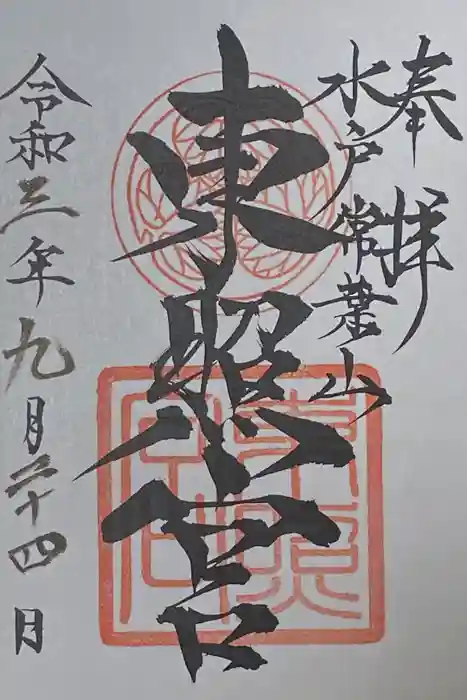 奉拝
水戸常葉山
東照宮
令和三年九月二十四日